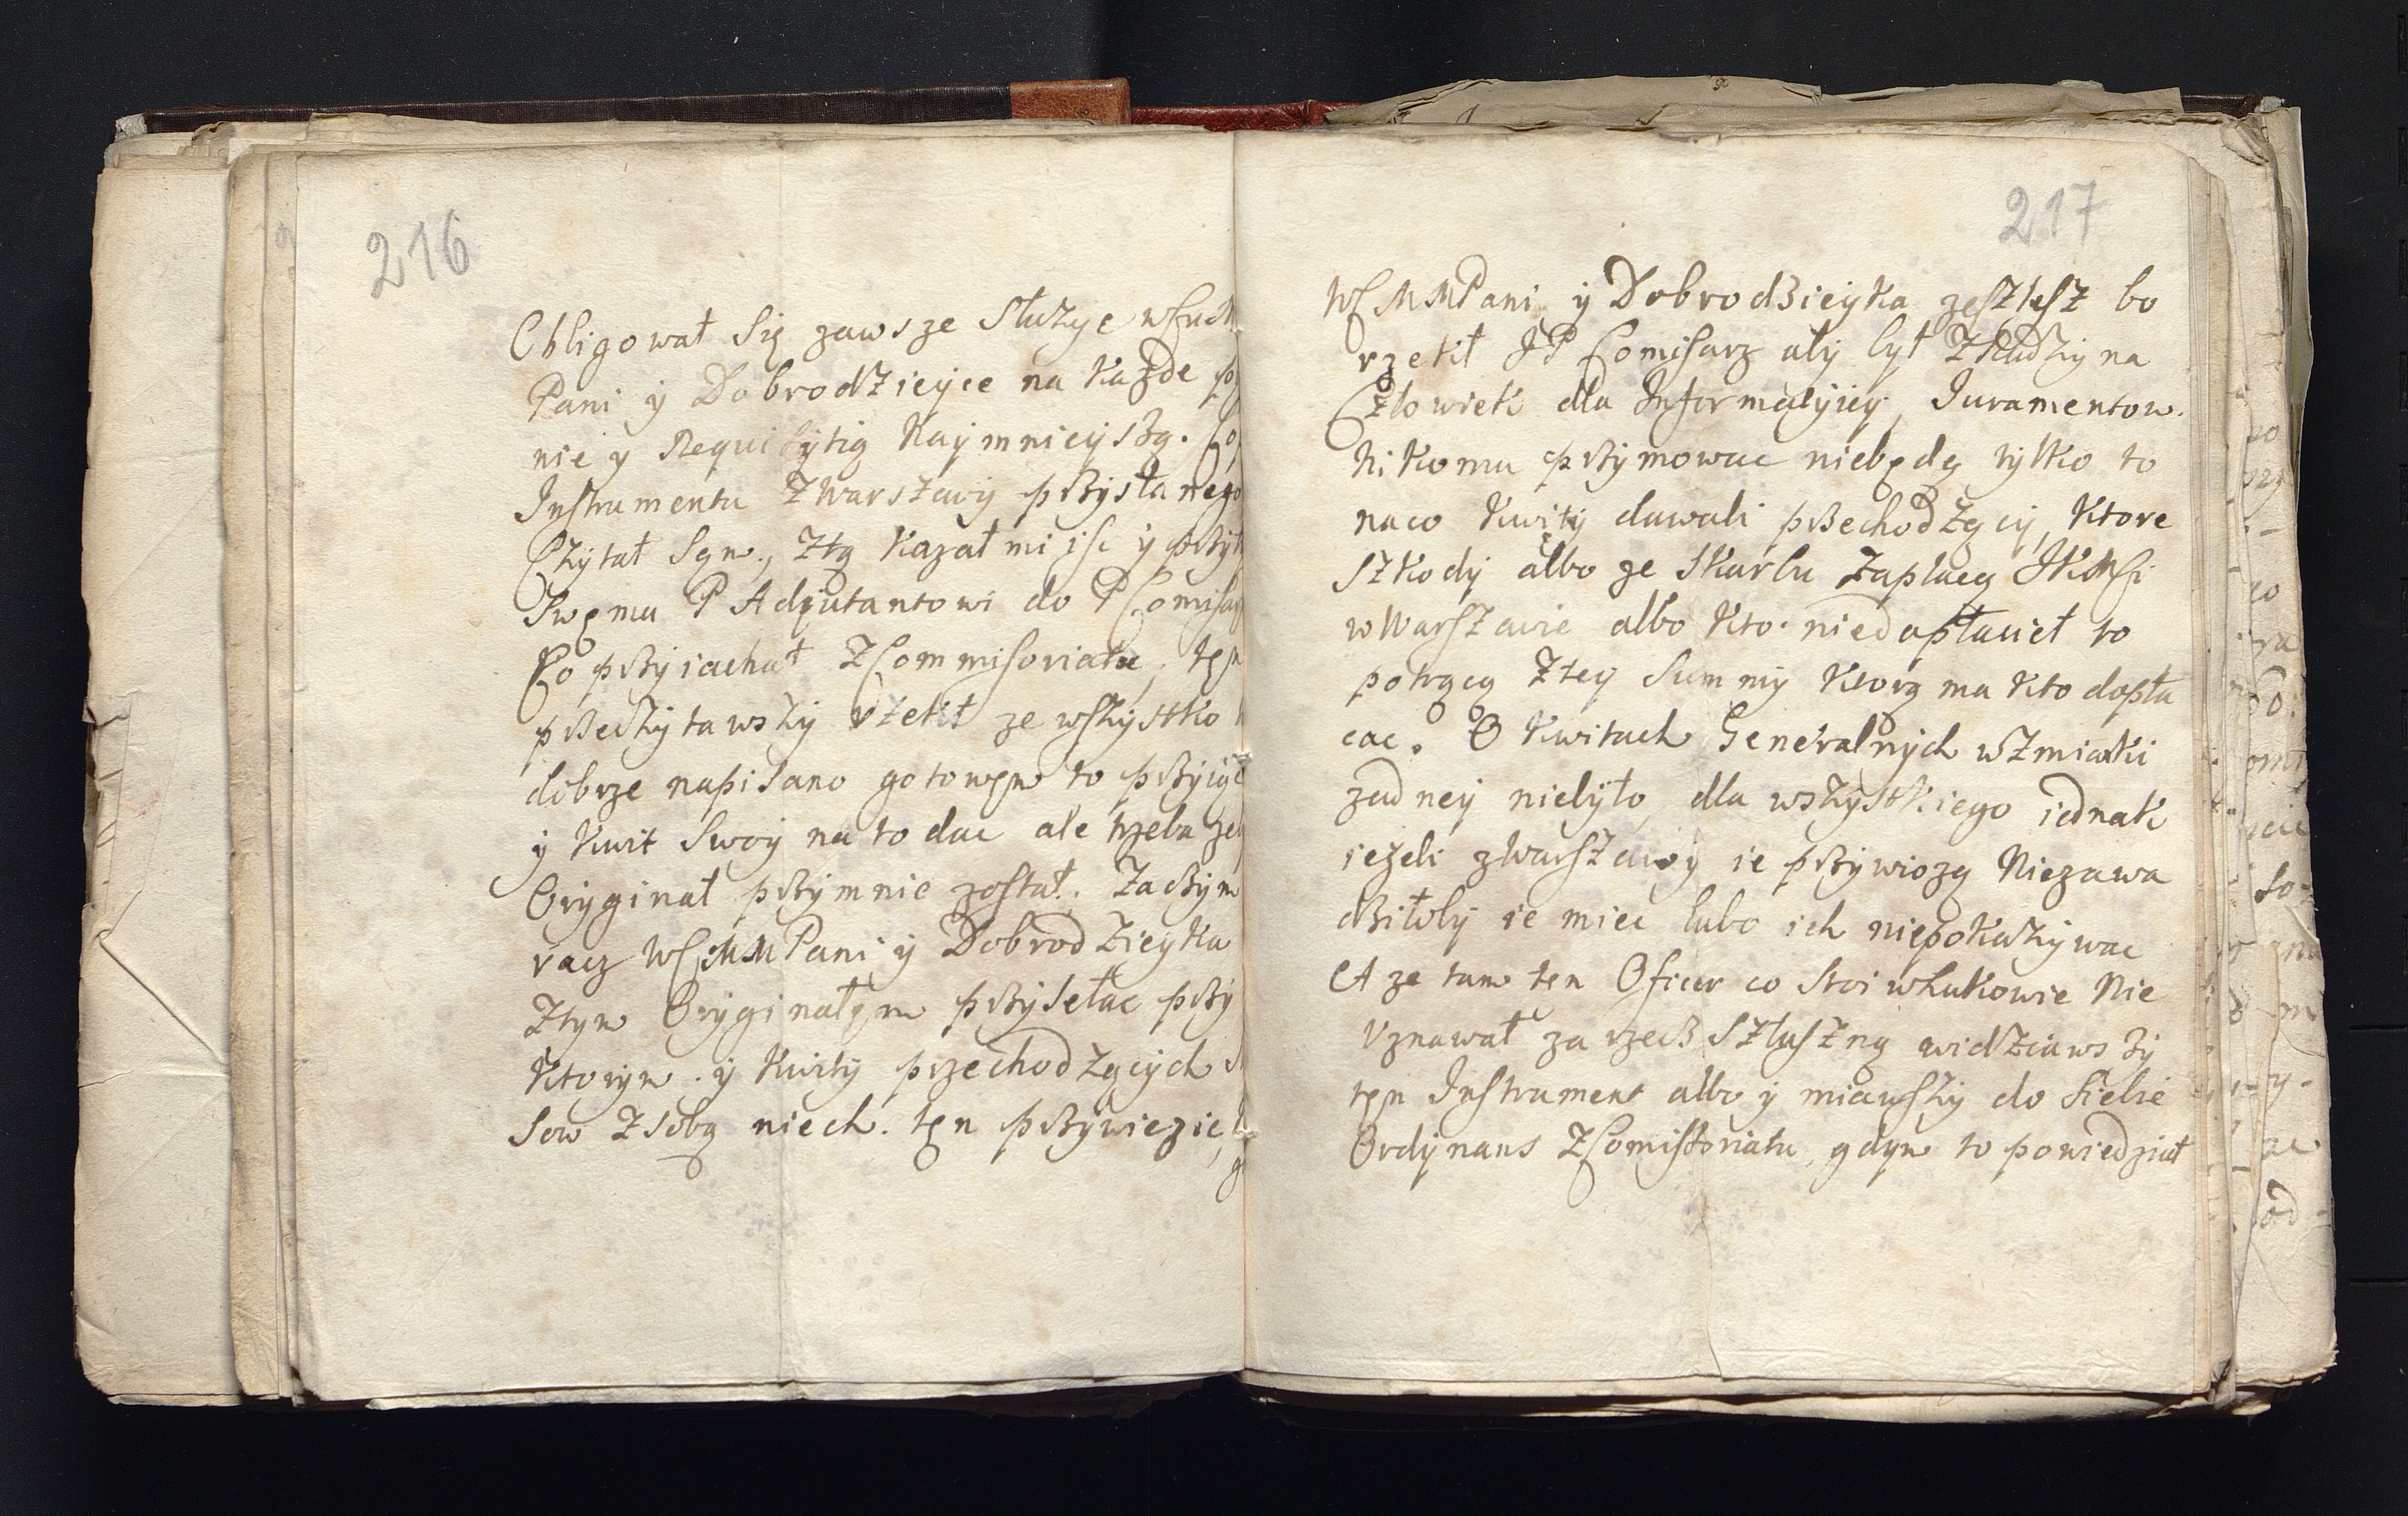 216
Obligował się zawsze służyc
Pani ÿ Dobrodzieÿce na każde
nie ÿ Requisÿtią Naÿmnieÿszą.
Instrumentu z Warszawÿ przÿsłanego
Czÿtał sąm, ztą kazał mi iśc ÿ
swęmu P Adiutantowi do P
Co przÿiachał z Commisoriatu. tęn
przeczÿtawszÿ rzekł ze wszÿstko
dobrze napisano gotowęm to przÿiąc
ÿ kwit swoÿ na to dac ale trzeba
Orÿginał przÿmnie został. Zaczÿm
racz WMM Pani ÿ Dobrodzieÿka
ztÿm Orÿginałęm przÿsełac przÿ
ktorÿm ÿ kwitÿ przechodzącÿch
sow zsobą niech tęn przÿwiezie,
217
WMMPani ÿ Dobrodzieÿka bo
rzekł JP Comisarz abÿ bÿł na
Człowiek dla Informacÿieÿ, Iuramentow.
Nikomu przÿmowac niebędą tÿlko to
naco kwitÿ dawali przechodzącÿ, ktore
szkodÿ albo ze skarbu zapłacą JKMsci
wWarszawie albo kto niedopłacieł to
potrącą zteÿ summÿ ktorą ma kto dopła
cac. O kwitach Generalnÿch wzmianki
zadneÿ niebÿło, dla wszÿstkiego iednak
ieżeli zWarszawÿ ie przÿwiozą Niezawa
dziłobÿ ie miec lubo ich niepokazÿwac
A ze tam ten Oficer co stoi wŁukowie Nie
Vznawał za rzecz szłuszną widziawszÿ
tęn Instrument albo ÿ miawszÿ do siebie
Ordÿnans z Comissoriatu, gdÿm to powiedział